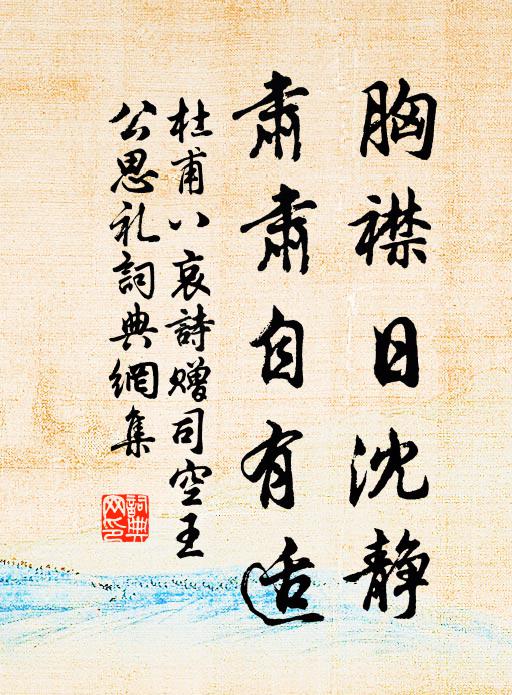 胸襟日沈静
肅肅自有适
杜甫八哀詩贈司空王
公思礼詞典網集
詞典網印